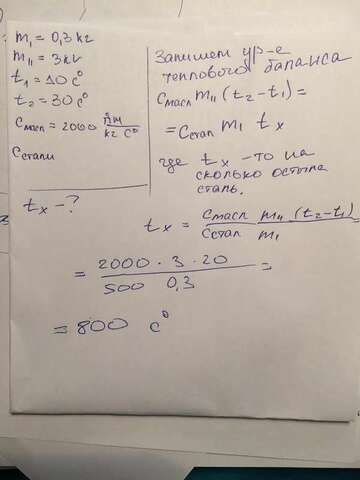 m₁ = 0,3 kг
m₁₁ = 3 kг
t₁ = 10 C°
t₂ = 30 C°
Cмасл = 2000 Дж/кг C°
Cстали
tₓ - ?
Запишем ур-е
теплового баланса
Cмасл m₁₁ (t₂-t₁) =
= Cстал m₁ tₓ
где tₓ - то на
сколько остыла
сталь.
tₓ = Cмасл m₁₁ (t₂-t₁) / Cстал m₁
= 2000 · 3 · 20 / 500 0,3 =
= 800 C°